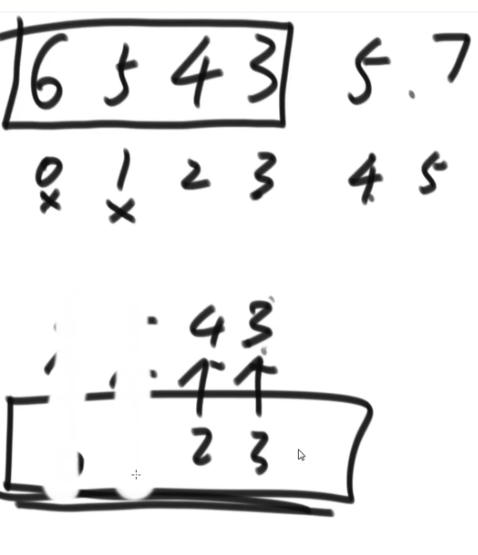 6 5 4 3 5 . 7
0 1 2 3 4 5
x x
4 3
2 3